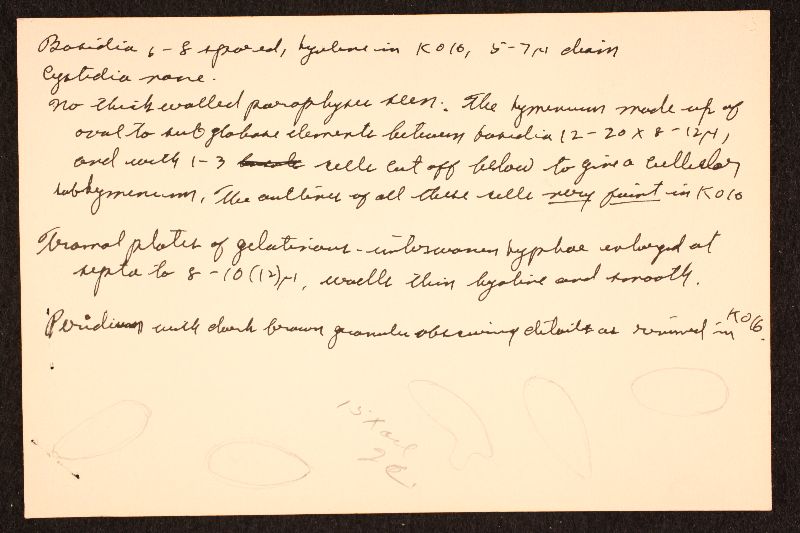 Basidia 6-8 spored, hyaline in KOH, 5-7µ diam
Cystidia none.
No thick walled paraphyses seen. The hymenium made up of
oval to subglobose elements between basidia 12-20 x 8-12µ,
and with 1-3 cells cut off below to give a cellular
subhymenium. The outlines of all these cells very faint in KOH
Tramal plates of gelatinous-interwoven hyphae enlarged at
septa to 8-10(12)µ, walls thin hyaline and smooth.
Peridium with dark brown granules obscuring details as revived in KOH.
15 x